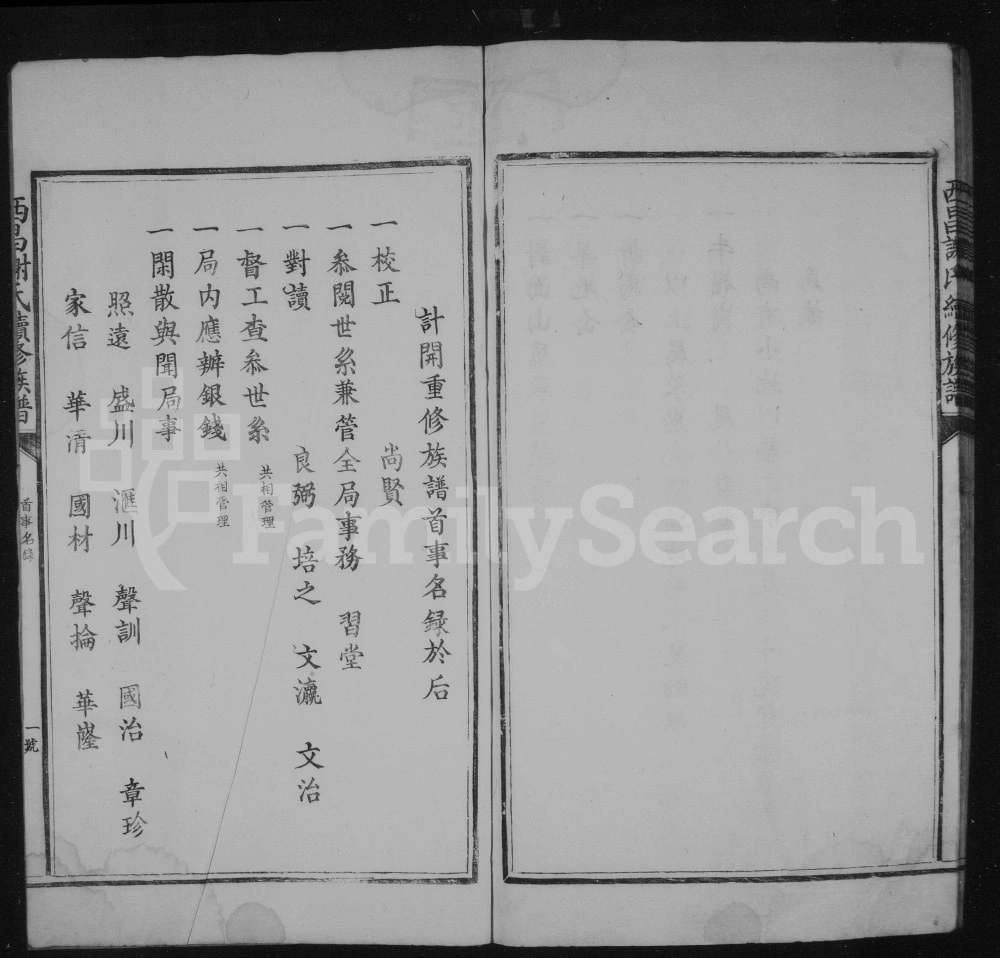 西昌謝氏續修族譜
計開重修族譜首事名録於后
一校正 尚賢
一叅閱世系兼管全局事務 習堂
一對讀 良弼 培之 文瀛 文治
一督工查叅世系 共相管理
一局内應辦銀錢 共相管理
一閑散與聞局事
照遠 盛川 滙川 聲訓 國治 章珍
家信 華清 國材 聲掄 華
西昌謝氏續修族譜
首事名錄
一號
FamilySearch